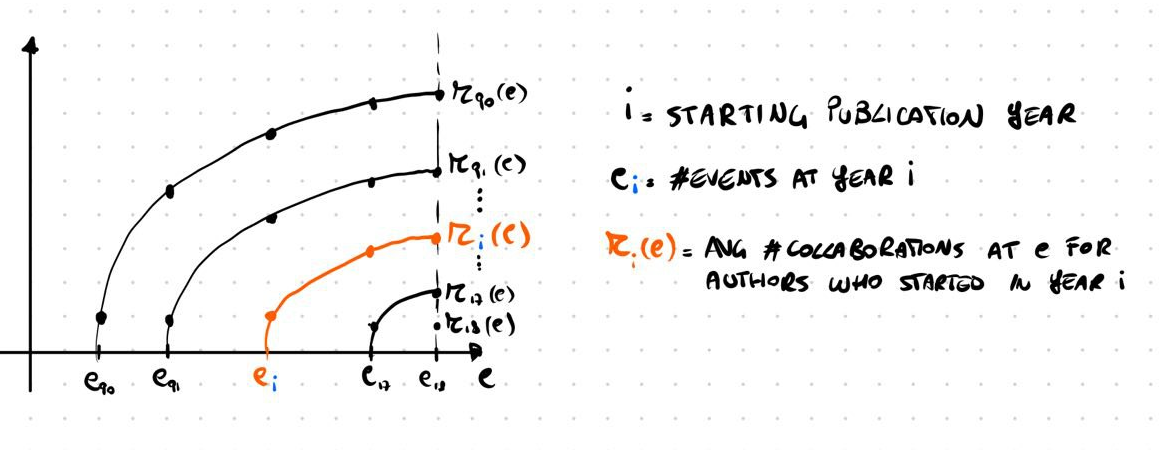 r₉₀(e)
r₉₁(e)
⋮
rᵢ(e)
⋮
r₁₇(e)
r₁₈(e)
e₉₀ e₉₁ eᵢ e₁₇ e₁₈ e
i = STARTING PUBLICATION YEAR
eᵢ = #EVENTS AT YEAR i
rᵢ(e) = AVG #COLLABORATIONS AT e FOR
AUTHORS WHO STARTED IN YEAR i